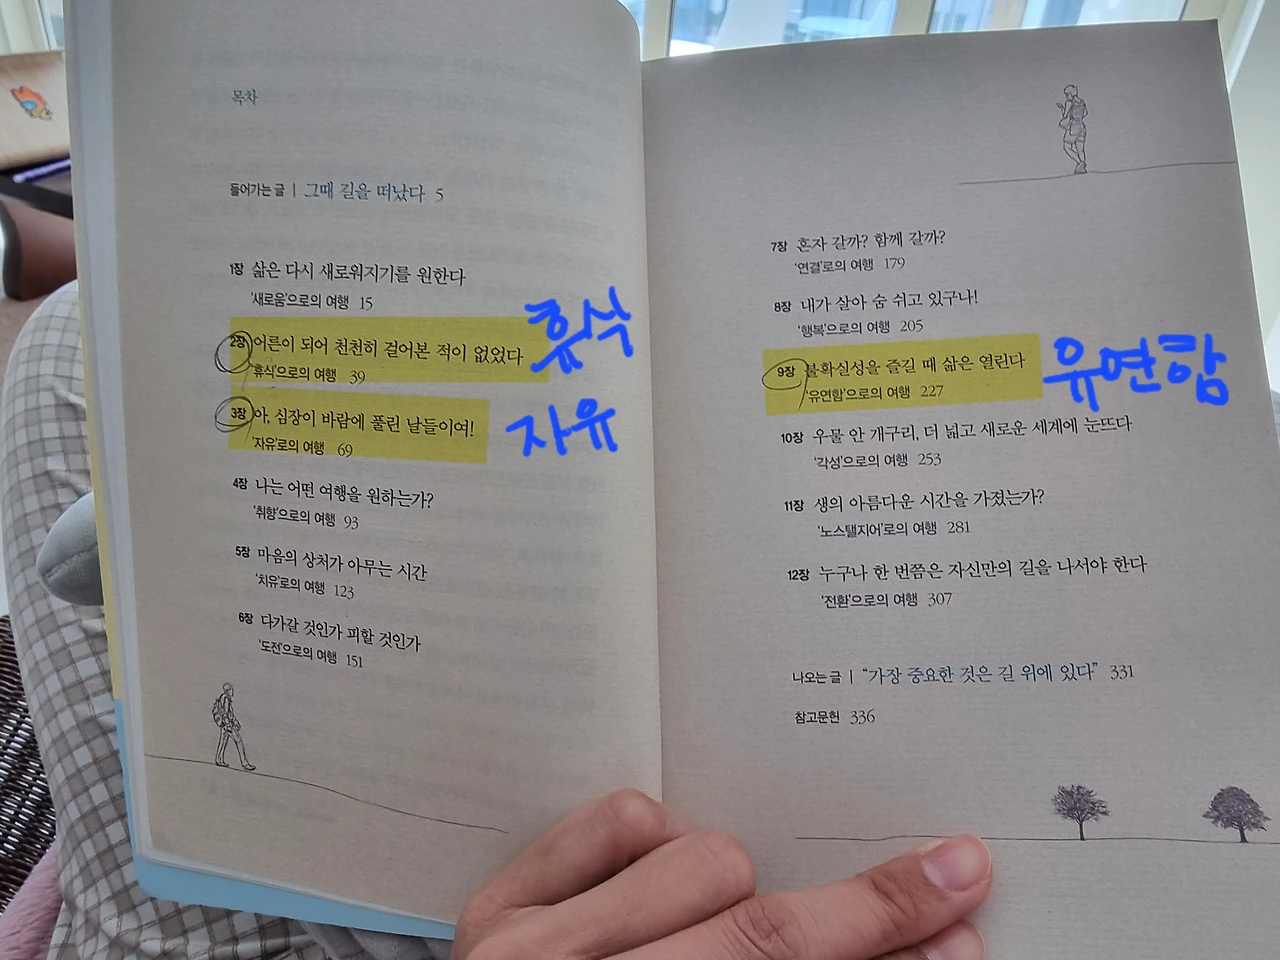 목차
들어가는 글 | 그때 길을 떠났다 5
1장 삶은 다시 새로워지기를 원한다
'새로움'으로의 여행 15
2장 어른이 되어 천천히 걸어본 적이 없었다
'휴식'으로의 여행 39
휴식
3장 아, 심장이 바람에 풀린 날들이여!
'자유'로의 여행 69
자유
4장 나는 어떤 여행을 원하는가?
'취향'으로의 여행 93
5장 마음의 상처가 아무는 시간
'치유'로의 여행 123
6장 다가갈 것인가 피할 것인가
'도전'으로의 여행 151
7장 혼자 갈까? 함께 갈까?
'연결'로의 여행 179
8장 내가 살아 숨 쉬고 있구나!
'행복'으로의 여행 205
9장 불확실성을 즐길 때 삶은 열린다
'유연함'으로의 여행 227
유연함
10장 우물 안 개구리, 더 넓고 새로운 세계에 눈뜨다
'각성'으로의 여행 253
11장 생의 아름다운 시간을 가졌는가?
'노스탤지어'로의 여행 281
12장 누구나 한 번쯤은 자신만의 길을 나서야 한다
'전환'으로의 여행 307
나오는 글 | "가장 중요한 것은 길 위에 있다" 331
참고문헌 336